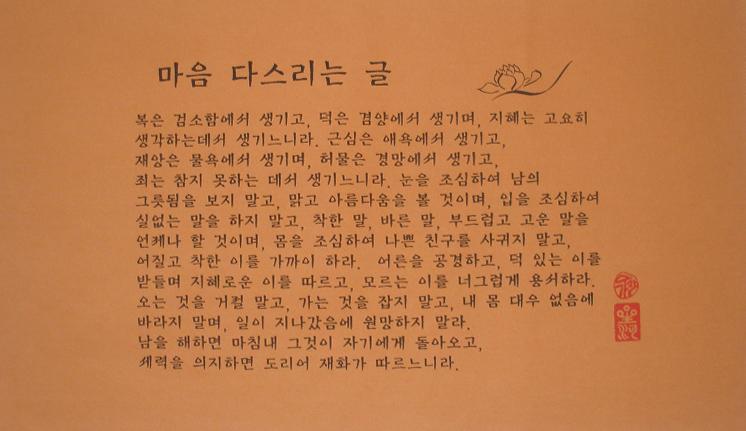 마음 다스리는 글
복은 검소함에서 생기고, 덕은 겸양에서 생기며, 지혜는 고요히
생각하는데서 생기느니라. 근심은 애욕에서 생기고,
재앙은 물욕에서 생기며, 허물은 경망에서 생기고,
죄는 참지 못하는 데서 생기느니라. 눈을 조심하여 남의
그릇됨을 보지 말고, 맑고 아름다움을 볼 것이며, 입을 조심하여
실없는 말을 하지 말고, 착한 말, 바른 말, 부드럽고 고운 말을
언케나 할 것이며, 몸을 조심하여 나쁜 친구를 사귀지 말고,
어질고 착한 이를 가까이 하라. 어른을 공경하고, 덕 있는 이를
받들며 지혜로운 이를 따르고, 모르는 이를 너그럽게 용서하라.
오는 것을 거절 말고, 가는 것을 잡지 말고, 내 몸 대우 없음에
바라지 말며, 일이 지나갔음에 원망하지 말라.
남을 해하면 마침내 그것이 자기에게 돌아오고,
세력을 의지하면 도리어 재화가 따르느니라.